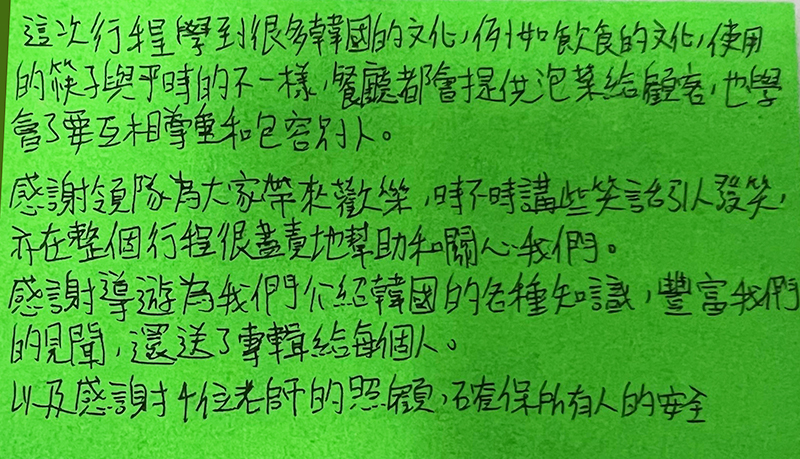 這次行程學到很多韓國的文化,例如飲食的文化,使用
的筷子與平時的不一樣,餐廳都會提供泡菜給顧客,也學
會了要互相尊重和包容別人。
感謝領隊為大家帶來歡樂,時不時講些笑話引人發笑,
亦在整個行程很盡責地幫助和關心我們。
感謝導遊為我們介紹韓國的各種知識,豐富我們
的見聞,還送了專輯給每個人。
以及感謝4位老師的照顧,確保所有人的安全